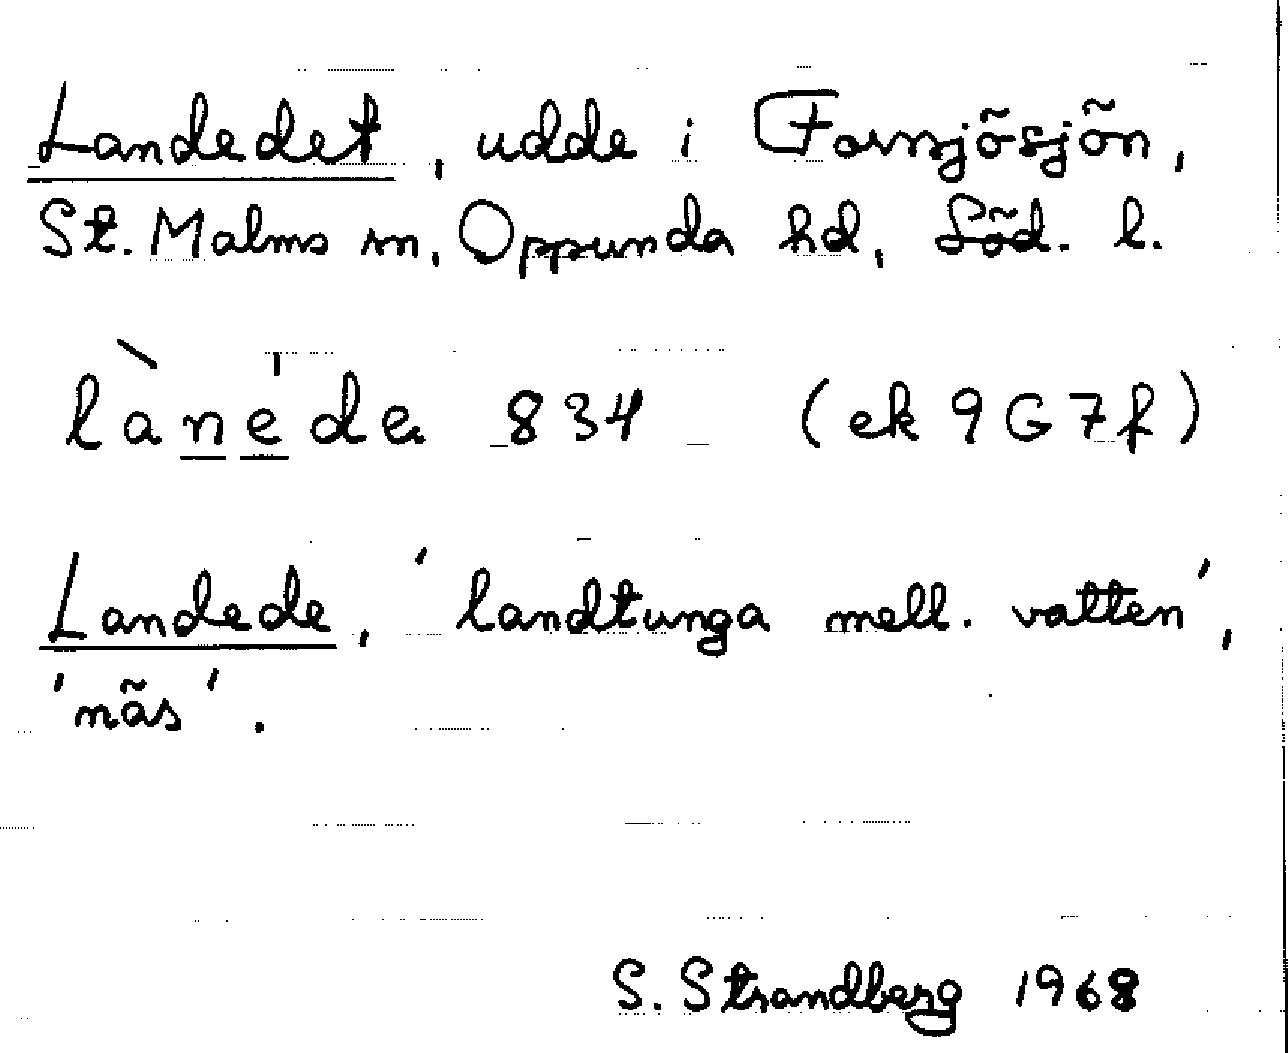 Landedet, udde i Farnsjösjön,
St. Malms sn, Oppunda hd, Söd. l.
lànede 834 (ek 9G7f)
Landede, 'landtunga mell. vatten',
'näs'.
S. Strandberg 1968